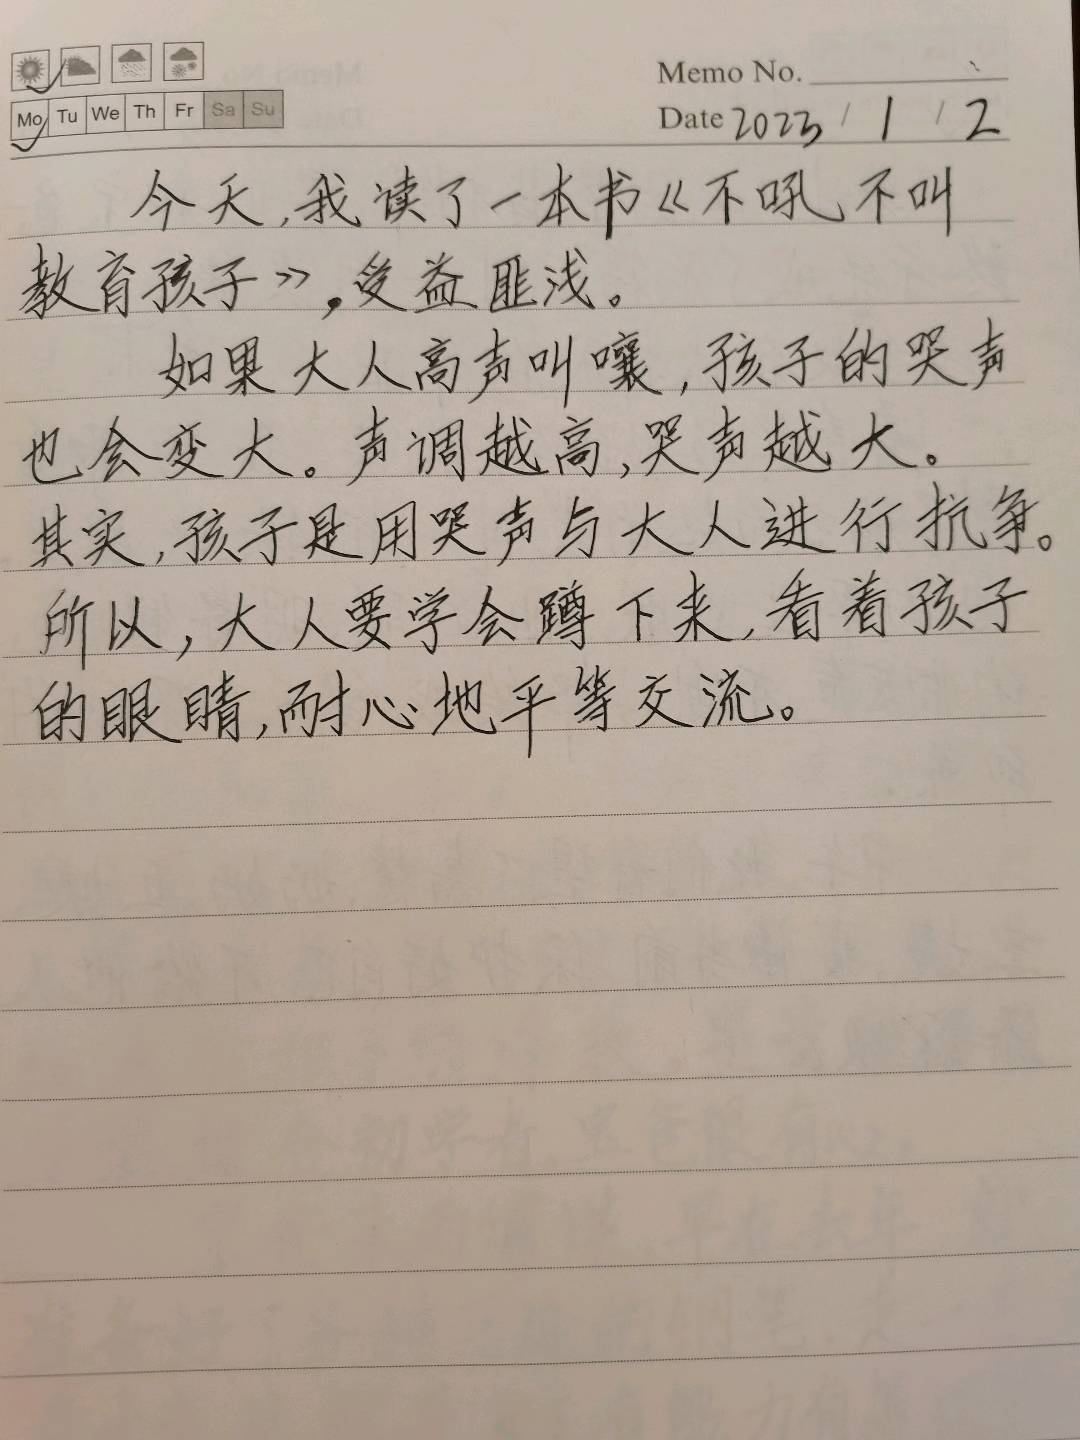 Memo No.
Mo Tu We Th Fr Sa Su
Date 2023 / 1 / 2
今天,我读了一本书《不吼不叫
教育孩子》,受益匪浅。
如果大人高声叫嚷,孩子的哭声
也会变大。声调越高,哭声越大。
其实,孩子是用哭声与大人进行抗争。
所以,大人要学会蹲下来,看着孩子
的眼睛,耐心地平等交流。